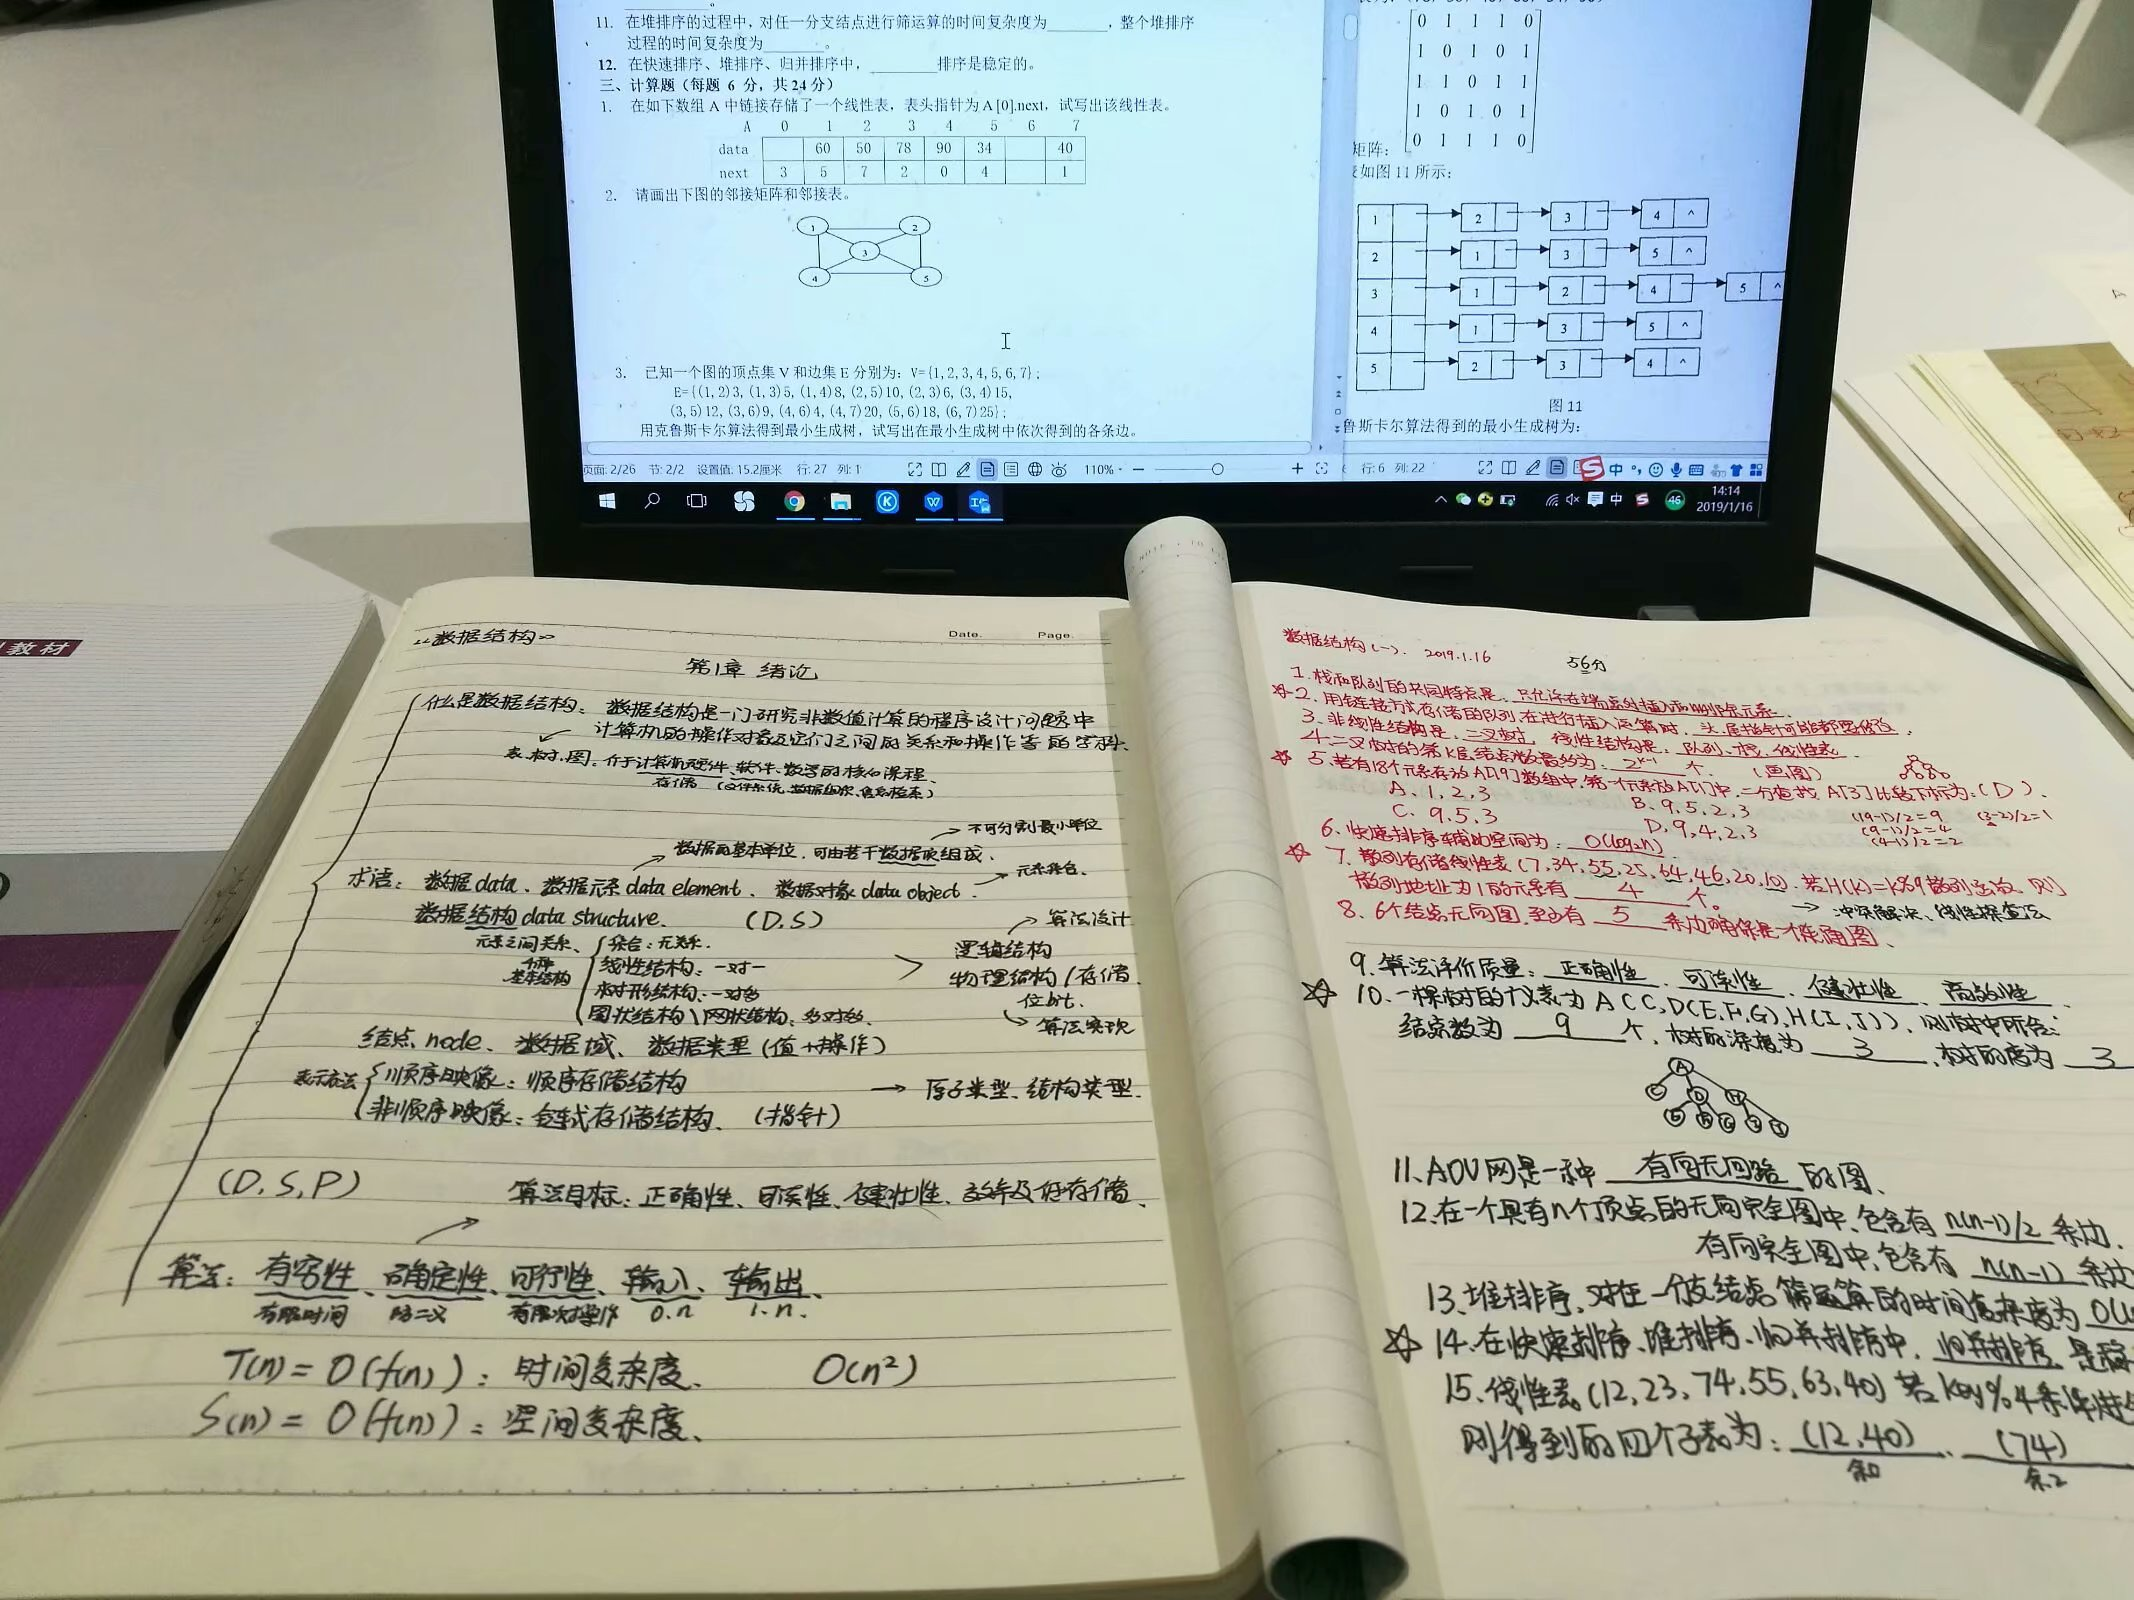 11. 在堆排序的过程中，对任一分支结点进行筛运算的时间复杂度为________，整个堆排序
过程的时间复杂度为________。
12. 在快速排序、堆排序、归并排序中，_________排序是稳定的。
三、计算题（每题 6 分，共24分）
1. 在如下数组A中链接存储了一个线性表，表头指针为A [0].next，试写出该线性表。
A 0 1 2 3 4 5 6 7
data 60 50 78 90 34 40
next 3 5 7 2 0 4 1
2. 请画出下图的邻接矩阵和邻接表。
1 2
3
4 5
3. 已知一个图的顶点集V和边集E分别为：V={1,2,3,4,5,6,7};
E={(1,2)3,(1,3)5,(1,4)8,(2,5)10,(2,3)6,(3,4)15,
(3,5)12,(3,6)9,(4,6)4,(4,7)20,(5,6)18,(6,7)25};
用克鲁斯卡尔算法得到最小生成树，试写出在最小生成树中依次得到的各条边。
页面: 2/26 节: 2/2 设置值: 15.2厘米 行: 27 列: 1 110%
0 1 1 1 0
1 0 1 0 1
1 1 0 1 1
1 0 1 0 1
0 1 1 1 0
矩阵：
如图11所示：
1 2 3 4 ^
2 1 3 5 ^
3 1 2 4 5 ^
4 1 3 5 ^
5 2 3 4 ^
图 11
鲁斯卡尔算法得到的最小生成树为：
行: 6 列: 22 中
中 46 14:14
2019/1/16
教材
NOTE · TO
《数据结构》
Date. Page.
第1章 绪论
什么是数据结构：数据结构是一门研究非数值计算的程序设计问题中
计算机的操作对象及它们之间的关系和操作等的学科.
表.树.图. 介于计算机硬件、软件、数学的核心课程.
存储
不可分割最小单位
数据的基本单位，可由若干数据项组成.
术语：数据data、数据元素data element、数据对象data object. 元素集合.
数据结构data structure. (D,S) 算法设计
元素之间关系、 集合：无关系. 逻辑结构
4种 线性结构：一对一 物理结构/存储.
基本结构 树形结构：一对多 位bit.
图状结构\网状结构：多对多. 算法实现
结点、node、数据域、数据类型（值+操作）
表示方法 顺序映像：顺序存储结构 → 原子类型、结构类型.
非顺序映像：链式存储结构、（指针）
(D,S,P) 算法目标：正确性、可读性、健壮性、效率及低存储.
算法：有穷性、确定性、可行性、输入、输出、
有限时间 有限次操作 0.n 1.n.
T(n) = O(f(n))：时间复杂度、 O(n²)
S(n) = O(f(n))：空间复杂度、
数据结构(一). 2019.1.16 56分
1. 栈和队列的共同特点是：只允许在端点处插入和删除元素.
☆2. 用链接方式存储的队列.在进行插入运算时、头.尾指针可能都要修改.
3. 非线性结构是：二叉树. 线性结构是：队列.栈.线性表
4. 二叉树的第K层结点数最多为：2^(k-1) 个. (画图)
☆5. 若有18个元素存放A[19]数组中.第一个元素放A[1]中.二分查找A[3]比较下标为：(D).
A. 1,2,3 B. 9,5,2,3 (19-1)/2=9 (3-2)/2=1
C. 9.5.3 D. 9,4,2,3 (9-1)/2=4
(4-1)/2=2
6. 快速排序辅助空间为：O(log₂n)
☆7. 散列存储线性表(7,34,55,25,64,46,20,10).若H(K)=K%9散列函数.则
散列地址为1的元素有 4 个. → 冲突解决、线性探查法
8. 6个结点无向图.至少有 5 条边确保是一个连通图、
9. 算法评价质量：正确性、可读性、健壮性、高效性.
☆10. 一棵树的广义表为A(C,D(E,F,G),H(I,J)).则树中所含：
结点数为 9 个，树的深度为 3 ，树的度为 3
A
C D H
E F G I J
11. AOV网是一种 有向无回路 的图.
12. 在一个具有n个顶点的无向完全图中、包含有 n(n-1)/2 条边.
有向完全图中、包含有 n(n-1) 条边
13. 堆排序、对任一分支结点筛运算的时间复杂度为 O(
☆14. 在快速排序、堆排序、归并排序中、归并排序 是稳
15. 线性表(12,23,74,55,63,40)若Key%4条件进
则得到的四个子表为：(12,40) 、(74)
余0 余2